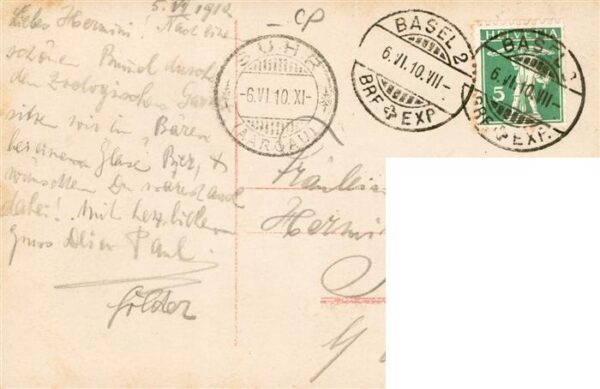 5. VI 1910
Liebes Hermini! Nach einem
schönen Bummel durch
den Zoologischen Garten
sitzen wir im "Bären"
bei einem Glase Bier, &
wünschten Du wärest auch
dabei! Mit herzlichem
Gruss Dein Paul.
CP
SUHR
-6.VI.10.XI-
(AARGAU)
BASEL 2
6.VI.10.VII-
BRF EXP.
HELVETIA
5
BASEL 2
6.VI.10.VII-
BRF EXP.
Fräulein